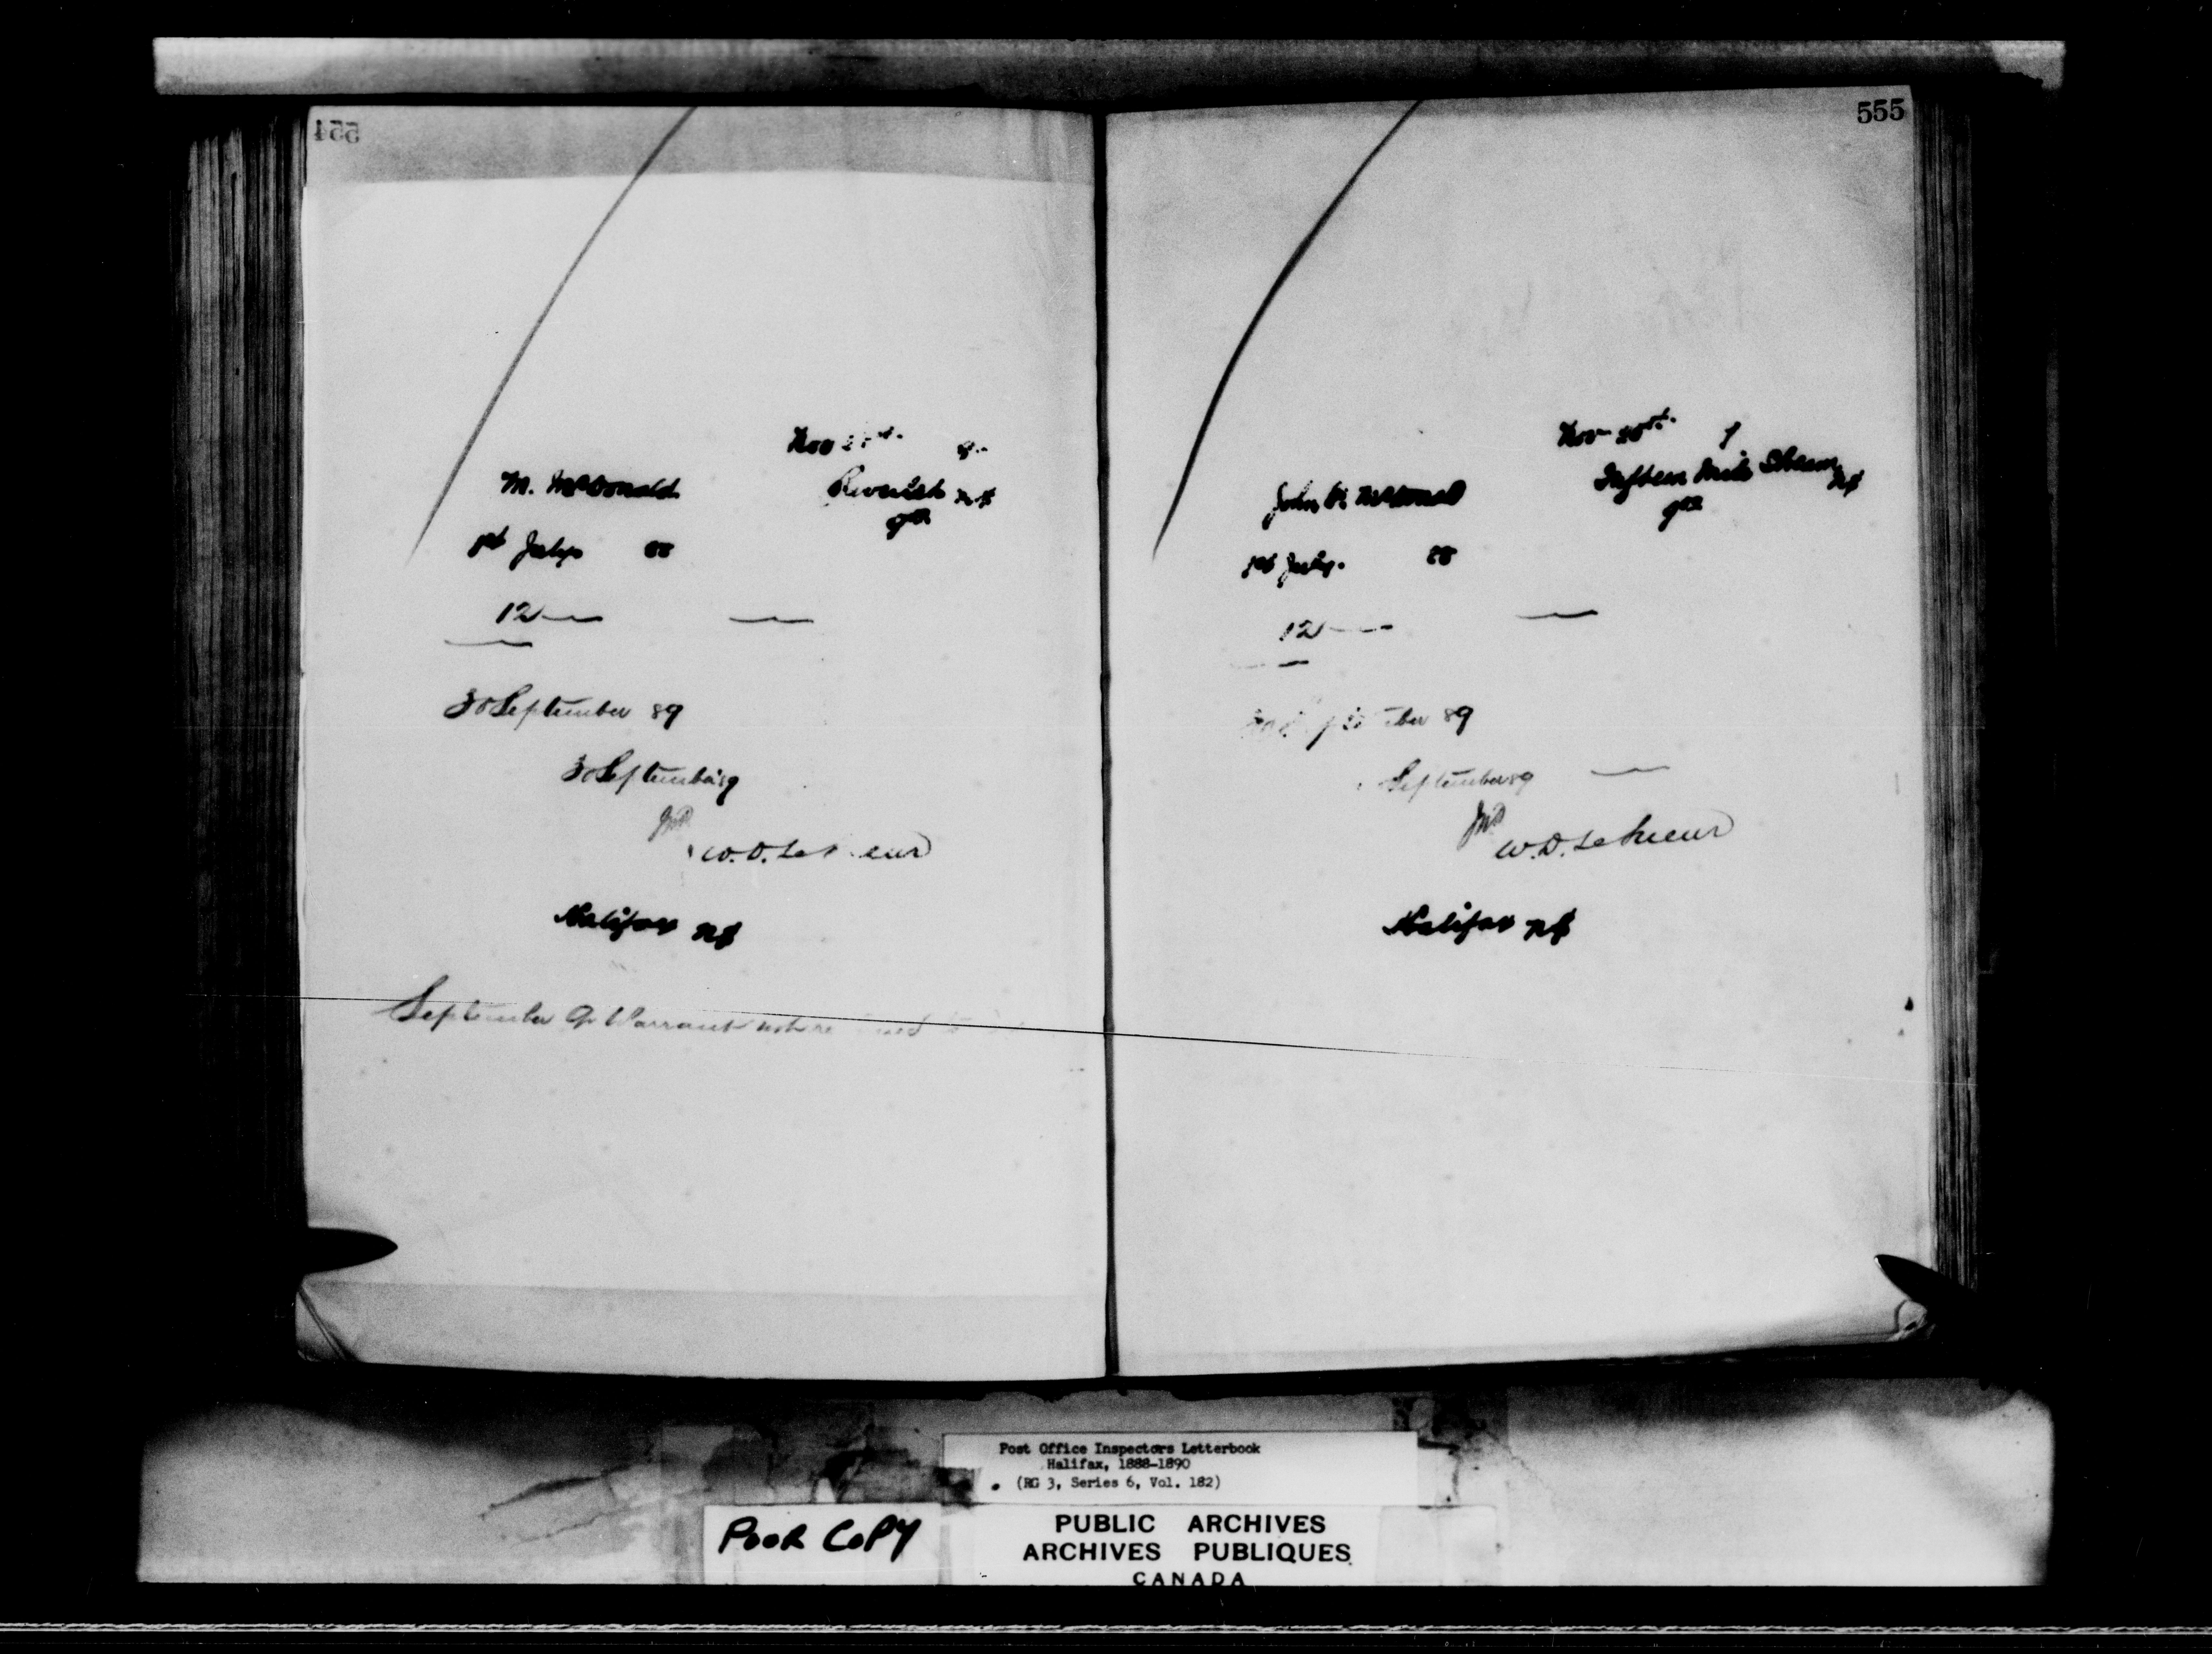 554
Nov
M. McDonald
N.S.
1st July 88
12
30 September 89
30 September 89
W.D. LeSueur
Halifax NS
September Qr Warrant not
555
Nov 20th
John McDonald
Fifteen Mile Stream NS
1st July. 88
12
September 89
September 89
W.D. LeSueur
Halifax NS
Post Office Inspectors Letterbook
Halifax, 1888-1890
(RG 3, Series 6, Vol. 182)
POOR COPY
PUBLIC ARCHIVES
ARCHIVES PUBLIQUES
CANADA